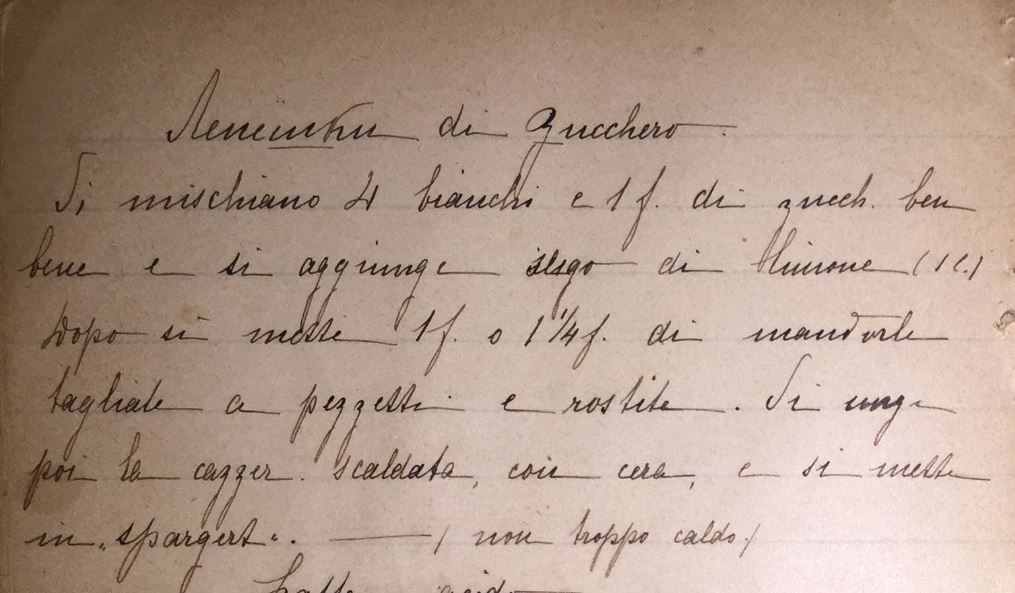 Лепешки di Zucchero
Si mischiano 4 bianchi e 1 f. di zucch. ben
bene e si aggiunge sugo di limone (1 l.)
Dopo si mette 1 f. o 1 1/4 f. di mandorle
tagliate a pezzetti e rostite. Si unge
poi la cazzer. scaldata, con cera, e si mette
in „spargert“. — (non troppo caldo.)
Latte acido